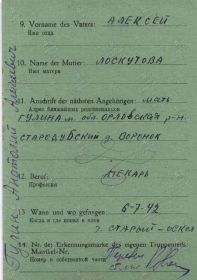 9. Vorname des Vaters: АЛЕКСЕЙ
Имя отца
10. Name der Mutter: ЛОСКУТОВА
Имя матери
11. Anschrift der nächsten Angehörigen: мать
Адрес ближайших родственников
ГУЛИНА м. обл. ОРЛОВСКАЯ р-н.
СТАРОДУБСКИЙ д. ВОРОНОК
12. Beruf: ПЕКАРЬ
Профессия
13. Wann und wo gefangen: 6-7-42
Когда и где попал в плен
г. СТАРЫЙ-ОСКОЛ
14. Nr. der Erkennungsmarke des eigenen Truppenteils:
Номер в собственной части
Гулин Анатолий Алексеевич